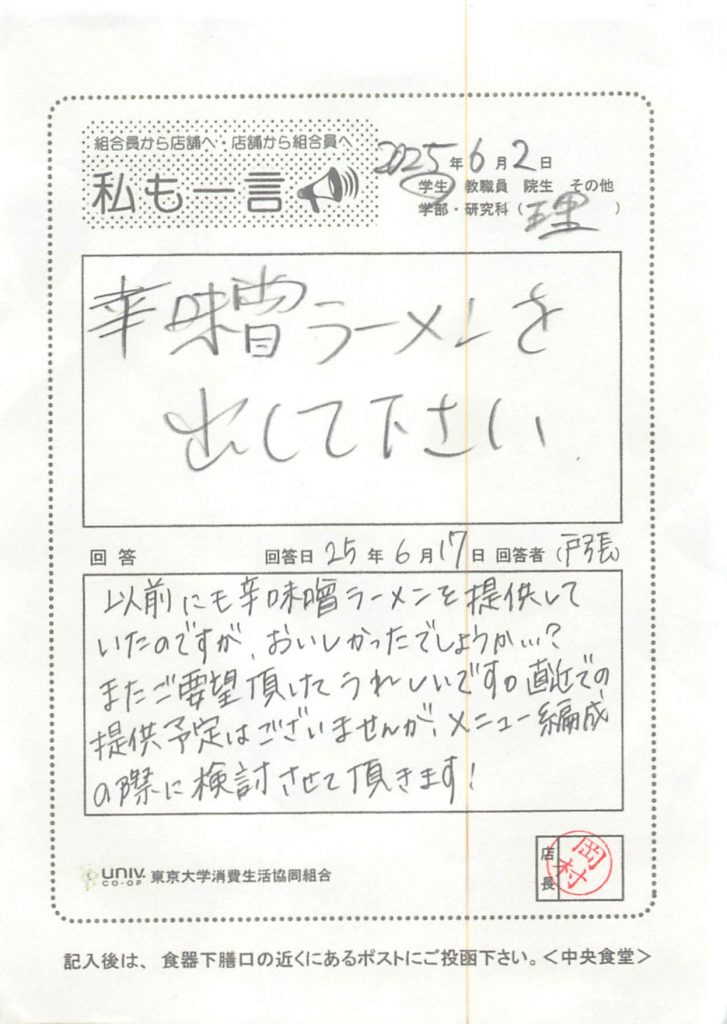 組合員から店舗へ・店舗から組合員へ
私も一言
2025年6月2日
学生 教職員 院生 その他
学部・研究科(理)
辛味噌ラーメンを
出して下さい
回答 回答日 25年6月17日 回答者(戸張)
以前にも辛味噌ラーメンを提供して
いたのですが、おいしかったでしょうか…?
またご要望頂けてうれしいです。直近での
提供予定はございませんが、メニュー編成
の際に検討させて頂きます!
店長
岡村
UNIV. CO-OP 東京大学消費生活協同組合
記入後は、食器下膳口の近くにあるポストにご投函下さい。<中央食堂>